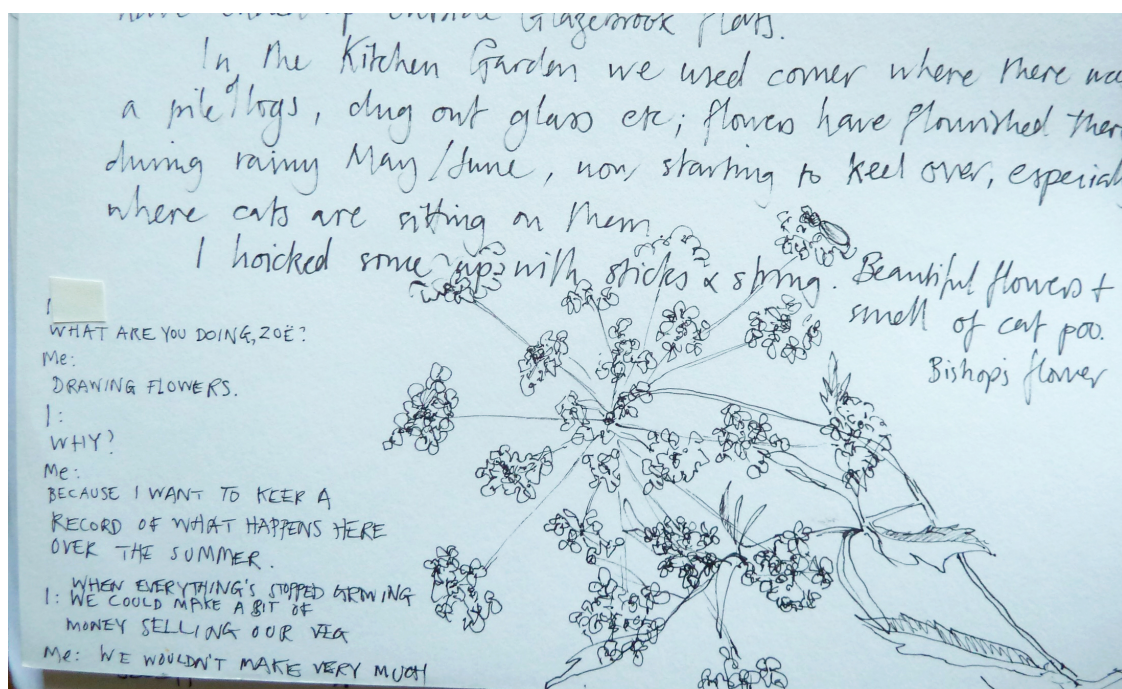 outside Glazebrook flats.
In the Kitchen Garden we used corner where there was
a pile of logs, dug out glass etc; flowers have flourished there
during rainy May/June, now starting to keel over, especially
where cats are sitting on them
I hoicked some up with sticks & string. Beautiful flowers +
smell of cat poo.
Bishops flower
I
WHAT ARE YOU DOING, ZOË?
Me:
DRAWING FLOWERS.
I:
WHY?
Me:
BECAUSE I WANT TO KEEP A
RECORD OF WHAT HAPPENS HERE
OVER THE SUMMER.
WHEN EVERYTHING'S STOPPED GROWING
I: WE COULD MAKE A BIT OF
MONEY SELLING OUR VEG
Me: WE WOULDN'T MAKE VERY MUCH